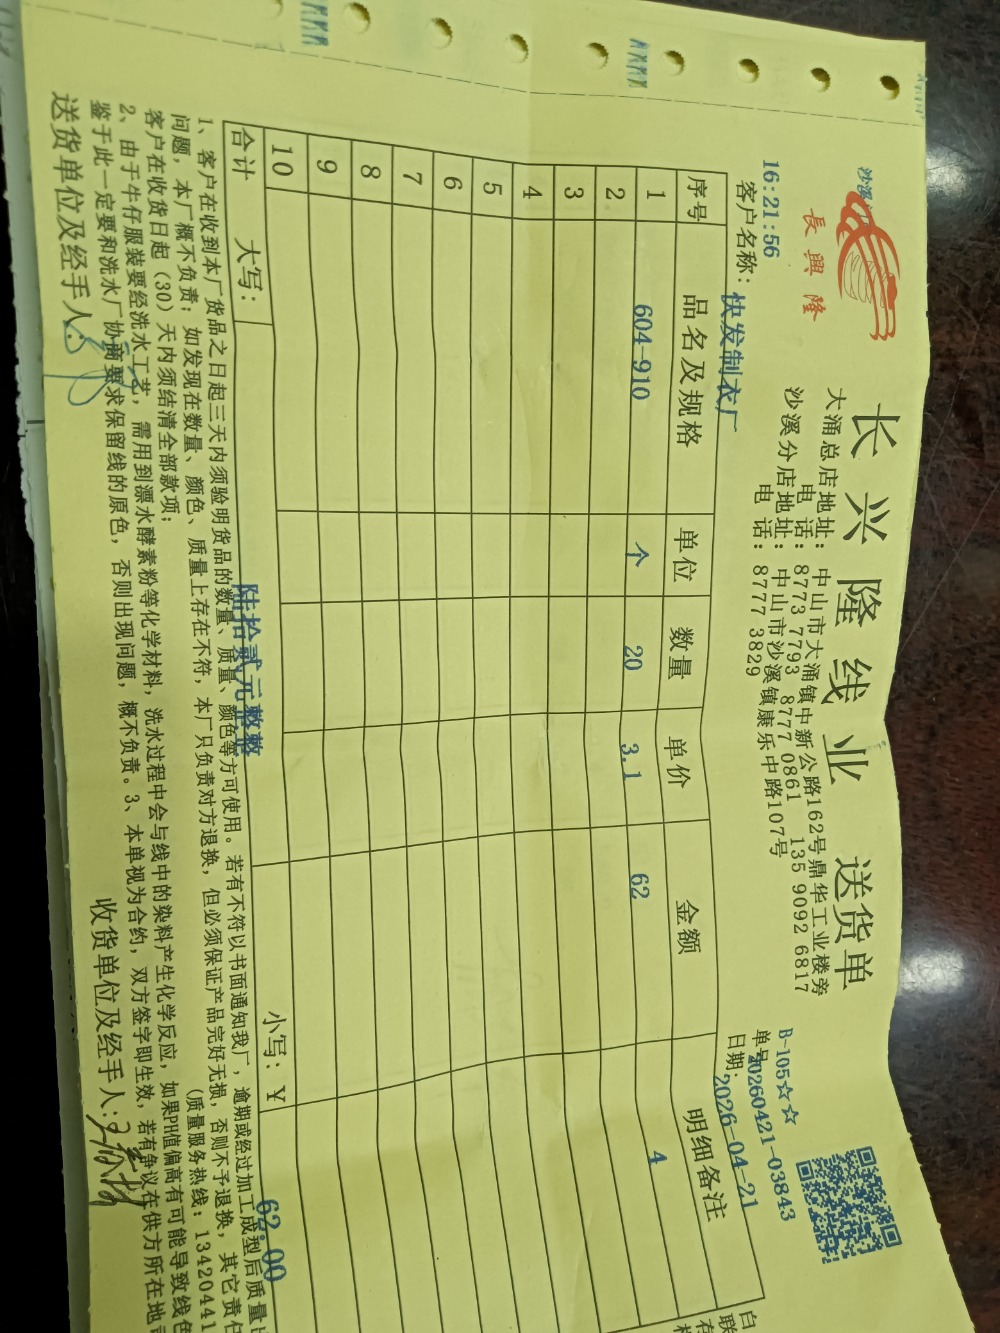 長興隆
长兴隆线业 送货单
大涌总店地址：中山市大涌镇中新公路162号鼎华工业楼旁
电 话：8773 7793 8777 0861 135 9092 6817
沙溪分店地址：中山市沙溪镇康乐中路107号
电 话：8777 3829
B-105☆☆
16:21:56
单号20260421-03843
客户名称：快发制衣厂
日期：2026-04-21
序号 品名及规格 单位 数量 单价 金额 明细备注
1 604-910 个 20 3.1 62 4
2
3
4
5
6
7
8
9
10
合计 大写：陆拾贰元整整 小写：￥ 62.00
1、客户在收到本厂货品之日起三天内须验明货品的数量、质量、颜色等方可使用。若有不符以书面通知我厂，逾期或经过加工成型后质量
问题，本厂概不负责；如发现在数量、颜色、质量上存在不符，本厂只负责对方退换，但必须保证产品完好无损，否则不予退换，其它责任
客户在收货日起（30）天内须结清全部款项；
（质量服务热线：13420441
2、由于牛仔服装要经洗水工艺，需用到漂水酵素粉等化学材料，洗水过程中会与线中的染料产生化学反应，如果PH值偏高有可能导致线色
鉴于此一定要和洗水厂协商要求保留线的原色，否则出现问题，概不负责。3、本单视为合约，双方签字即生效，若有争议在供方所在地
送货单位及经手人： 收货单位及经手人：
白
联
存